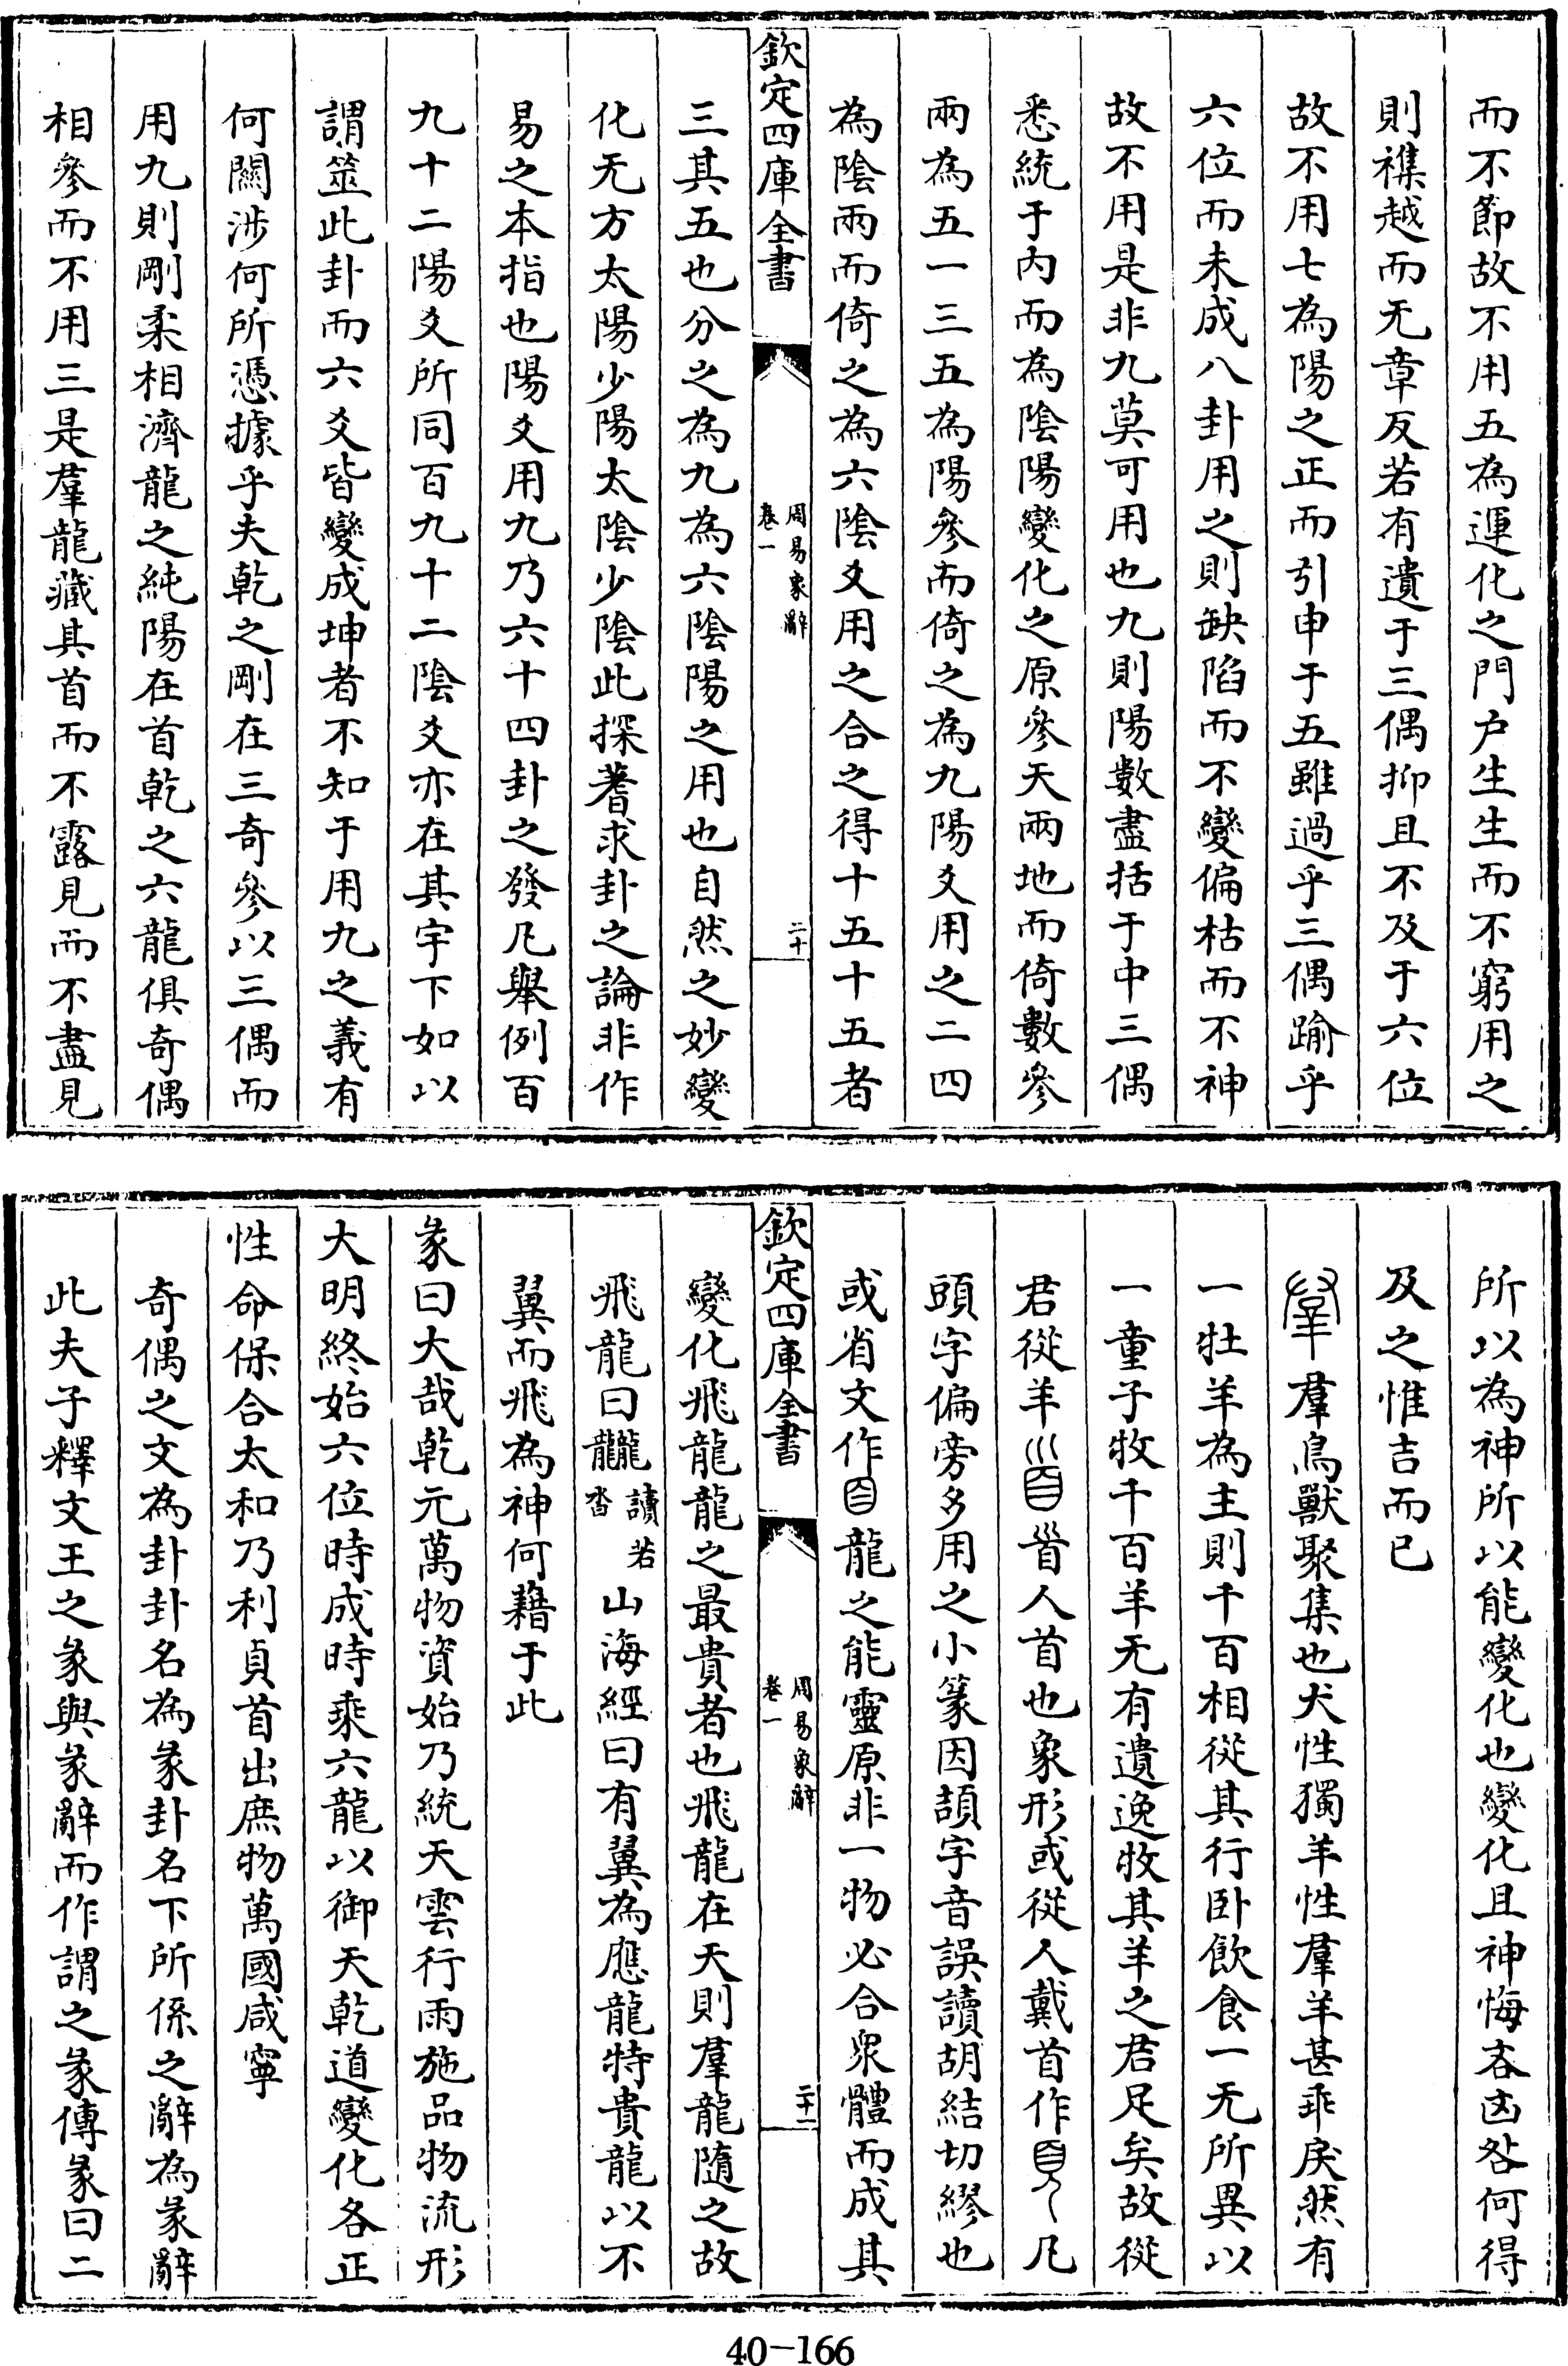 而不節故不用五為運化之門户生生而不窮用之
則襍越而无章反若有遺于三偶抑且不及于六位
故不用七為陽之正而引申于五雖過乎三偶踰乎
六位而未成八卦用之則缺陷而不變偏枯而不神
故不用是非九莫可用也九則陽數盡括于中三偶
悉統于内而為陰陽變化之原參天兩地而倚數參
兩為五一三五為陽參而倚之為九陽爻用之二四
為陰兩而倚之為六陰爻用之合之得十五十五者
欽定四庫全書
周易象辭
卷一
二十
三其五也分之為九為六陰陽之用也自然之妙變
化无方太陽少陽太陰少陰此探蓍求卦之論非作
易之本指也陽爻用九乃六十四卦之發凡舉例百
九十二陽爻所同百九十二陰爻亦在其宇下如以
謂筮此卦而六爻皆變成坤者不知于用九之義有
何關涉何所憑據乎夫乾之剛在三奇參以三偶而
用九則剛柔相濟龍之純陽在首乾之六龍俱奇偶
相參而不用三是羣龍藏其首而不露見而不盡見
所以為神所以能變化也變化且神悔吝凶咎何得
及之惟吉而已
羣鳥獸聚集也犬性獨羊性羣羊甚乖戾然有
一牡羊為主則千百相從其行卧飲食一无所異以
一童子牧千百羊无有遺逸牧其羊之君足矣故從
君從羊𩠐首人首也象形或從人戴首作頁凡
頭字偏旁多用之小篆因頡字音誤讀胡結切繆也
或省文作𦣻龍之能靈原非一物必合衆體而成其
欽定四庫全書
周易象辭
卷一
二十一
變化飛龍龍之最貴者也飛龍在天則羣龍隨之故
飛龍曰龖讀若沓山海經曰有翼為應龍特貴龍以不
翼而飛為神何藉于此
彖曰大哉乾元萬物資始乃統天雲行雨施品物流形
大明終始六位時成時乘六龍以御天乾道變化各正
性命保合太和乃利貞首出庶物萬國咸寧
奇偶之文為卦卦名為彖卦名下所係之辭為彖辭
此夫子釋文王之彖與彖辭而作謂之彖傳彖曰二
40-166